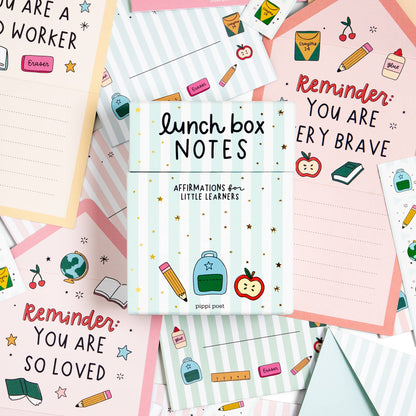 YOU ARE A
D WORKER
Eraser
Eraser
Crayons
24
glue
Reminder:
YOU ARE
ERY BRAVE
lunch box
NOTES
AFFIRMATIONS for
LITTLE LEARNERS
pippi post
Reminder:
YOU ARE
SO LOVED
glue
Eraser